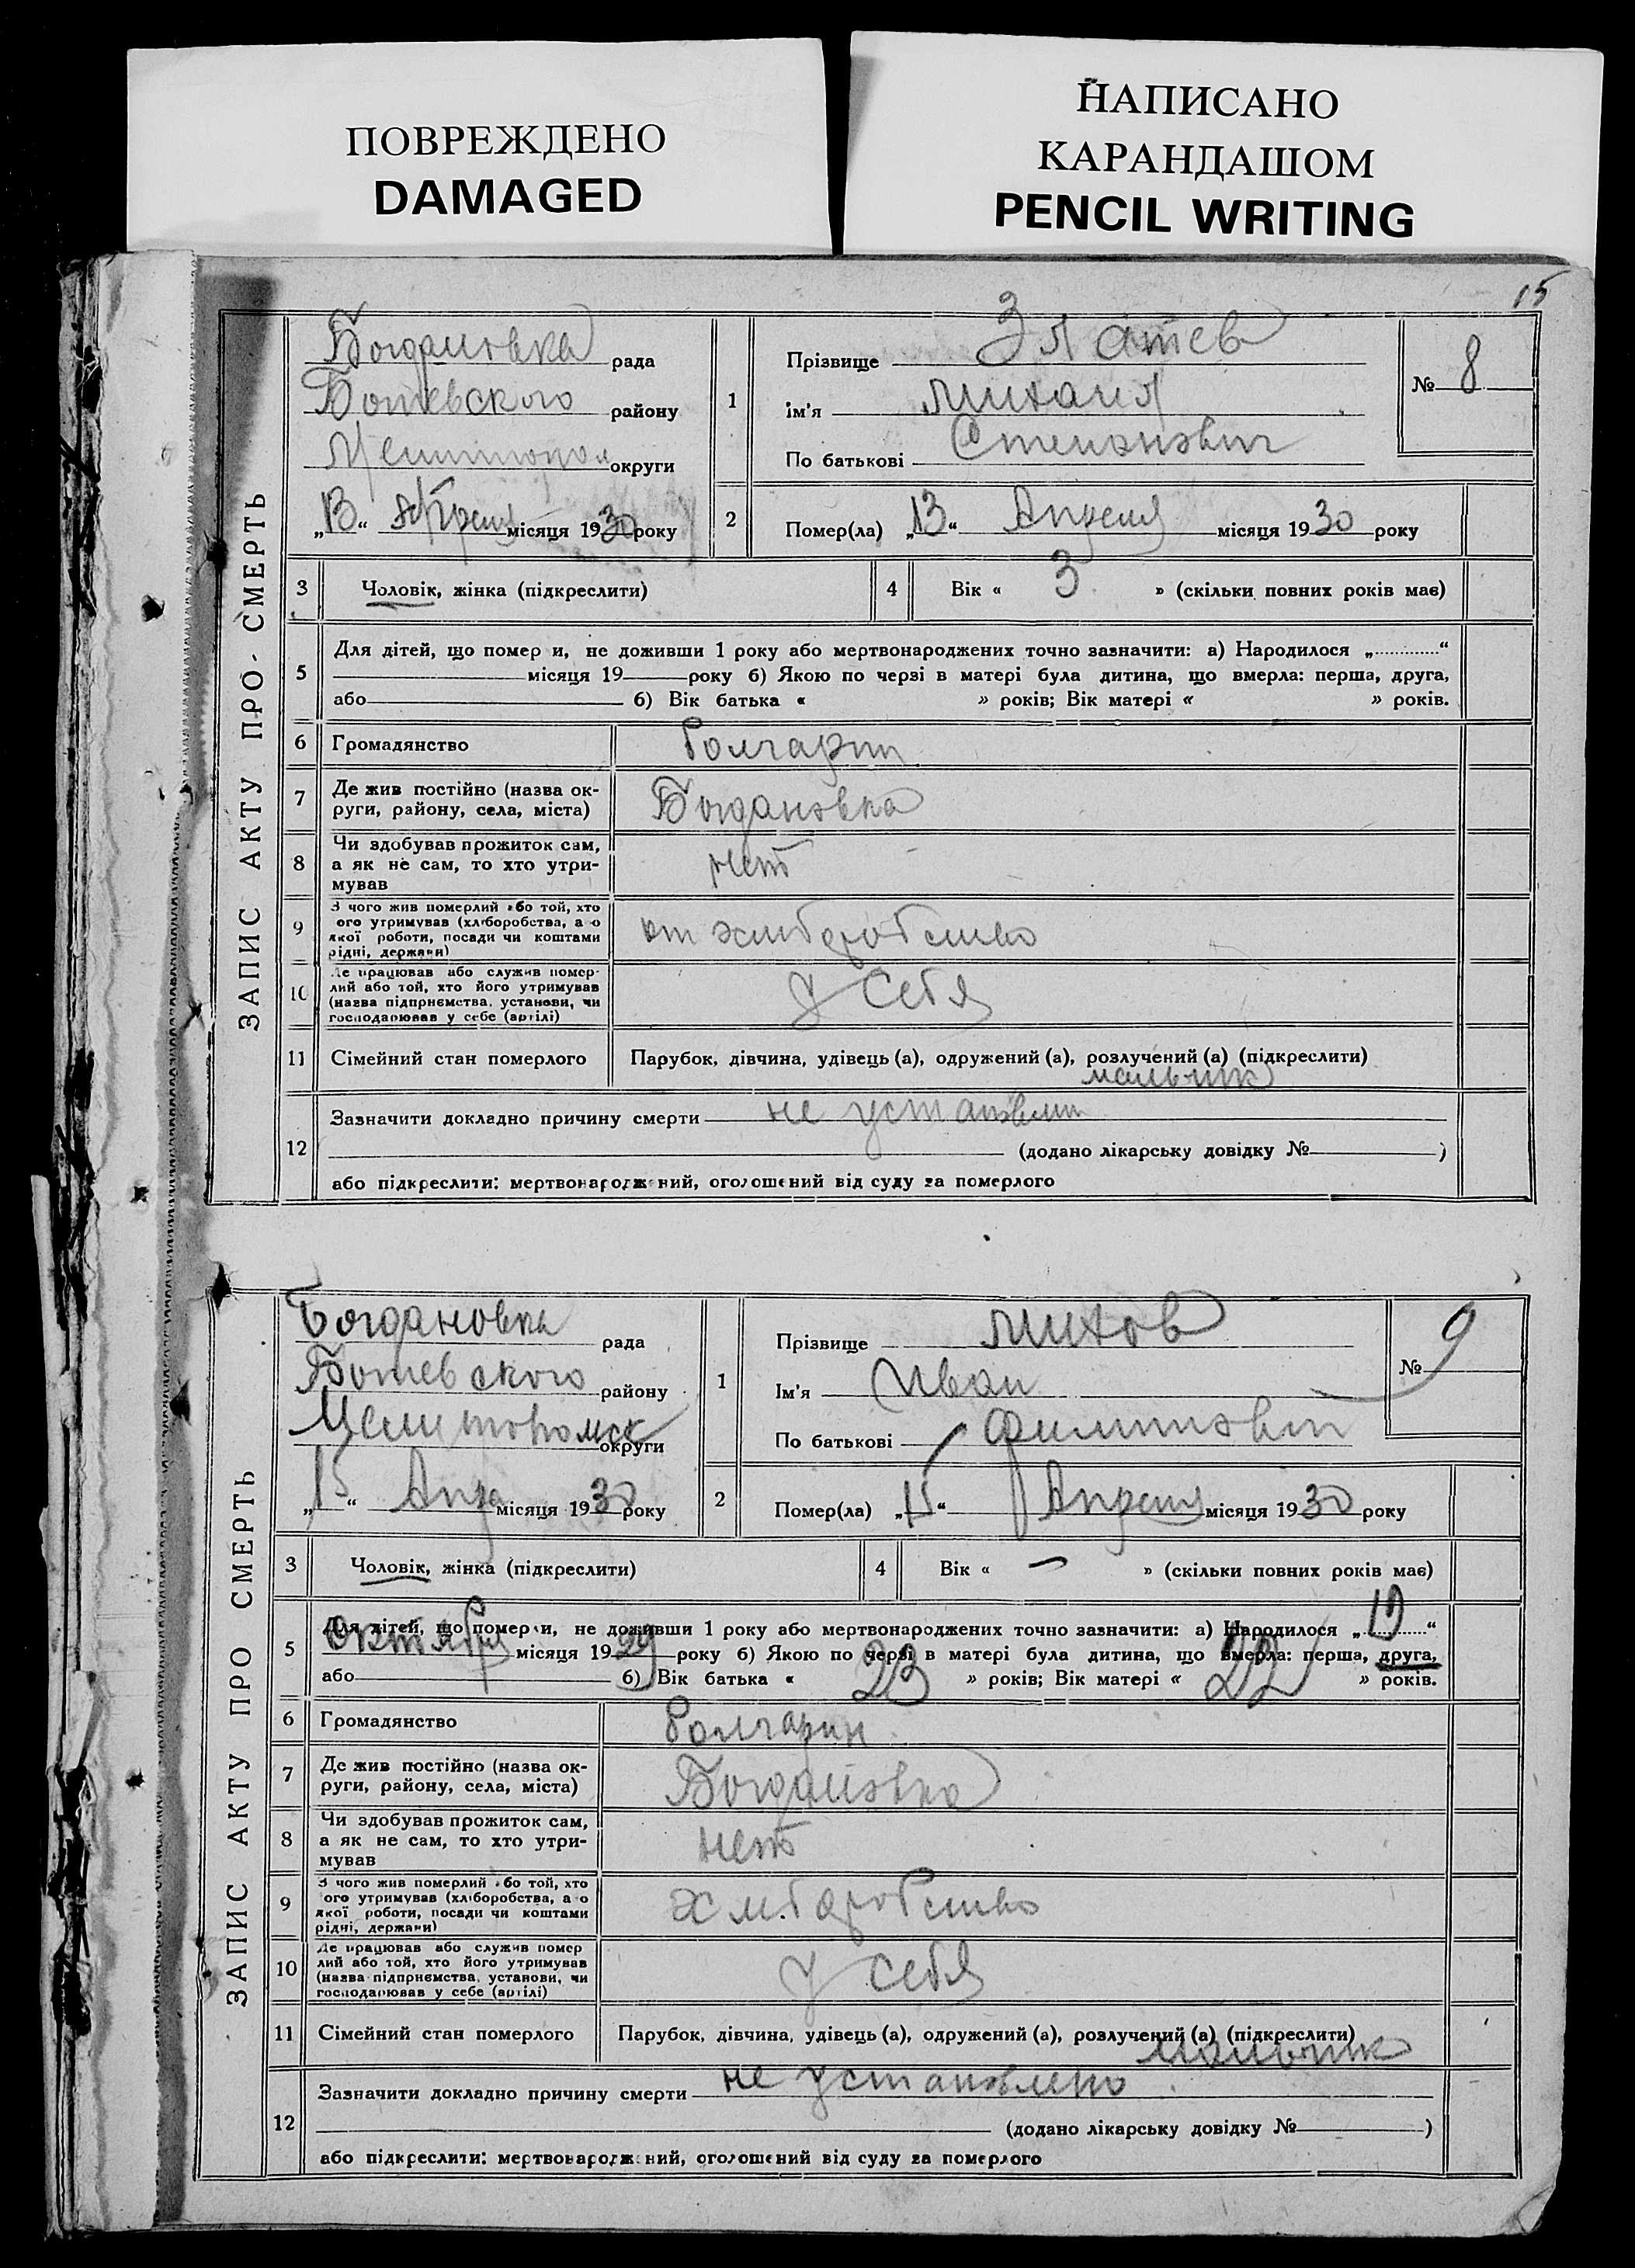 ПОВРЕЖДЕНО
DAMAGED
НАПИСАНО
КАРАНДАШОМ
PENCIL WRITING
15
ЗАПИС АКТУ ПРО СМЕРТЬ
Богдановка рада
Ботевского району
Мелитопол округи
„13“ Апреля місяця 1930 року
1
Прізвище Златев
Ім'я Михаил
По батькові Степанович
№ 8
2
Помер(ла) „13“ Апреля місяця 1930 року
3 Чоловік, жінка (підкреслити)
4 Вік « 3 » (скільки повних років має)
5
Для дітей, що помер и, не доживши 1 року або мертвонароджених точно зазначити: а) Народилося „ “
місяця 19 року б) Якою по черзі в матері була дитина, що вмерла: перша, друга,
або б) Вік батька « » років; Вік матері « » років.
6 Громадянство болгарин
7 Де жив постійно (назва ок-
руги, району, села, міста) Богдановка
8 Чи здобував прожиток сам,
а як не сам, то хто утри-
мував нет
9 З чого жив померлий або той, хто
ого утримував (хліборобства, а о
якої роботи, посади чи коштами
рідні, держави)
от хлиборобство
10 Де працював або служив помер-
лий або той, хто його утримував
(назва підприємства, установи, чи
господарював у себе (артілі)
у себя
11 Сімейний стан померлого Парубок, дівчина, удівець (а), одружений (а), розлучений (а) (підкреслити)
мальчик
12 Зазначити докладно причину смерти не установлин
(додано лікарську довідку № )
або підкреслити: мертвонароджений, оголошений від суду за померлого
ЗАПИС АКТУ ПРО СМЕРТЬ
Богдановка рада
Ботевского району
Мелитопольск округи
„15“ Апре місяця 1930 року
1
Прізвище Михов
Ім'я Иван
По батькові Филипович
№ 9
2
Помер(ла) „15“ Апреля місяця 1930 року
3 Чоловік, жінка (підкреслити)
4 Вік « — » (скільки повних років має)
5
Для дітей, що померли, не доживши 1 року або мертвонароджених точно зазначити: а) Народилося „10“
октября місяця 1929 року б) Якою по черзі в матері була дитина, що вмерла: перша, друга,
або б) Вік батька « 23 » років; Вік матері « 22 » років.
6 Громадянство болгарин
7 Де жив постійно (назва ок-
руги, району, села, міста) Богдановка
8 Чи здобував прожиток сам,
а як не сам, то хто утри-
мував нет
9 З чого жив померлий або той, хто
ого утримував (хліборобства, а о
якої роботи, посади чи коштами
рідні, держави)
хлиборобство
10 Де працював або служив помер
лий або той, хто його утримував
(назва підприємства, установи, чи
господарював у себе (артілі)
у себя
11 Сімейний стан померлого Парубок, дівчина, удівець (а), одружений (а), розлучений (а) (підкреслити)
мальчик
12 Зазначити докладно причину смерти не установлено
(додано лікарську довідку № )
або підкреслити: мертвонароджений, оголошений від суду за померлого